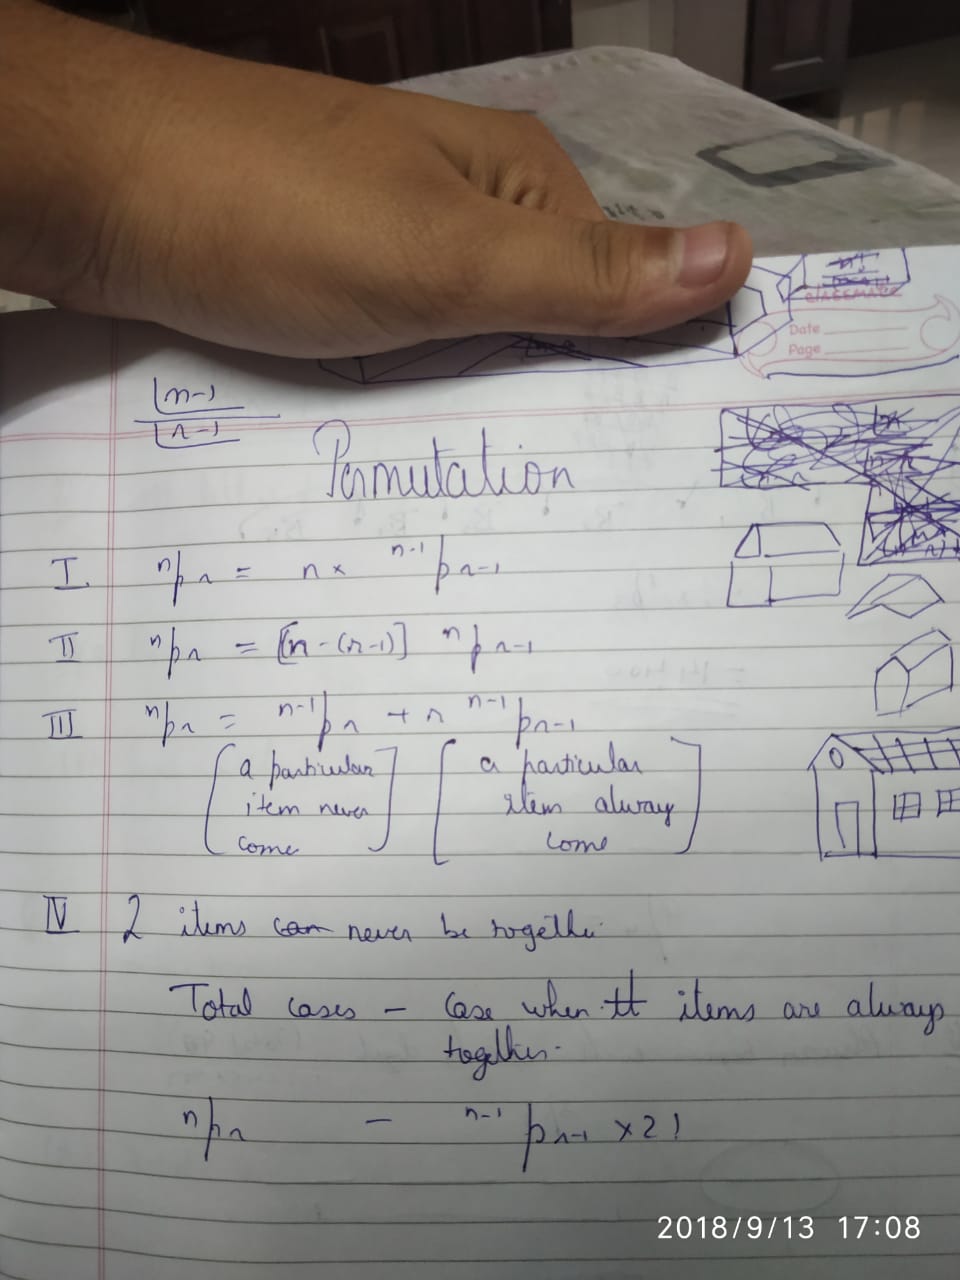 classmate
Date
Page
⌊n-1
⌊r-1
Permutation
I. ⁿPr = n × ⁿ⁻¹Pr-1
II ⁿPr = [n - (r-1)] ⁿPr-1
III ⁿPr = ⁿ⁻¹Pr + r ⁿ⁻¹Pr-1
a particular a particular
item never item alway
come come
IV 2 items can never be together.
Total cases - Case when tt items are always
together.
ⁿPr - ⁿ⁻¹Pr-1 × 2!
2018/9/13 17:08